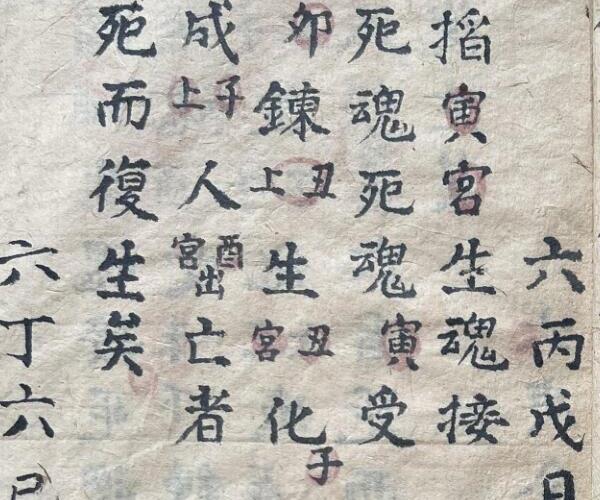 六丙戊日
掐寅宮生魂接
死魂死魂寅受
卯鍊丑上生丑宮化子
成子上人酉宮出亡者
死而復生矣
六丁六